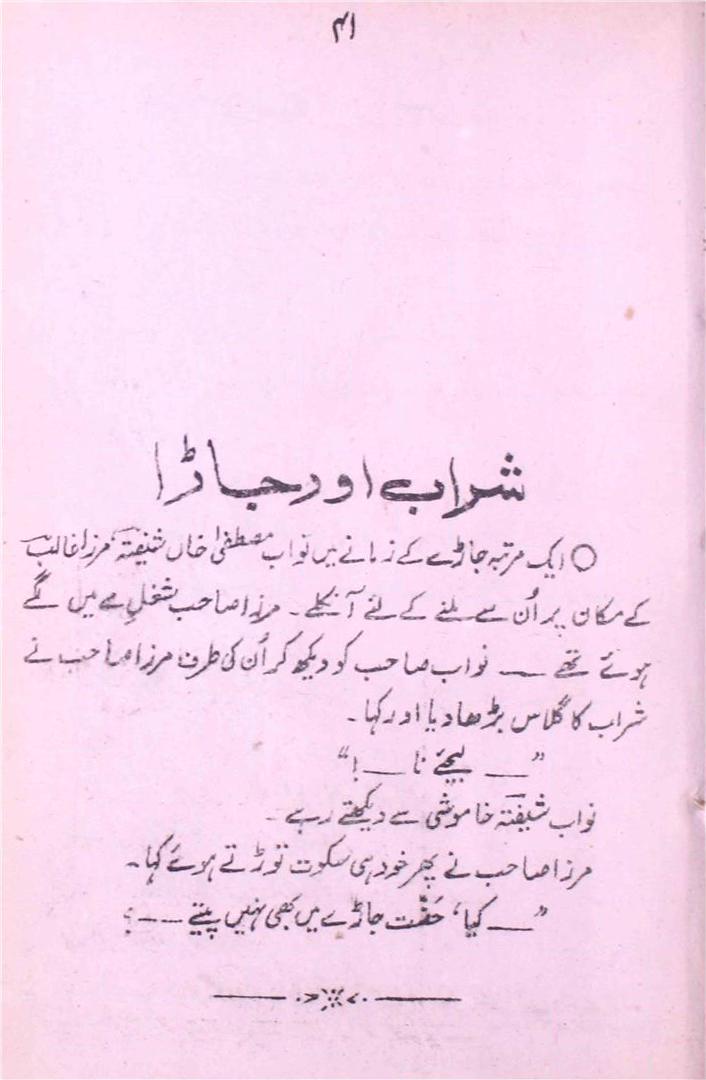 ۴۱
شراب اور جاڑا
○ ایک مرتبہ جاڑے کے زمانے میں نواب مصطفیٰ خاں شیفتہؔ، مرزا غالبؔ
کے مکان پر اُن سے ملنے کے لئے آنکلے۔ مرزا صاحب شغلِ مے میں لگے
ہوئے تھے ـــ نواب صاحب کو دیکھ کر اُن کی طرف مرزا صاحب نے
شراب کا گلاس بڑھا دیا اور کہا۔
”ـــ لیجئے نا ـــ!“
نواب شیفتہؔ خاموشی سے دیکھتے رہے۔
مرزا صاحب نے پھر خود ہی سکوت توڑتے ہوئے کہا۔
”ـــ کیا، حضّت جاڑے میں بھی نہیں پیتے ـــ؟